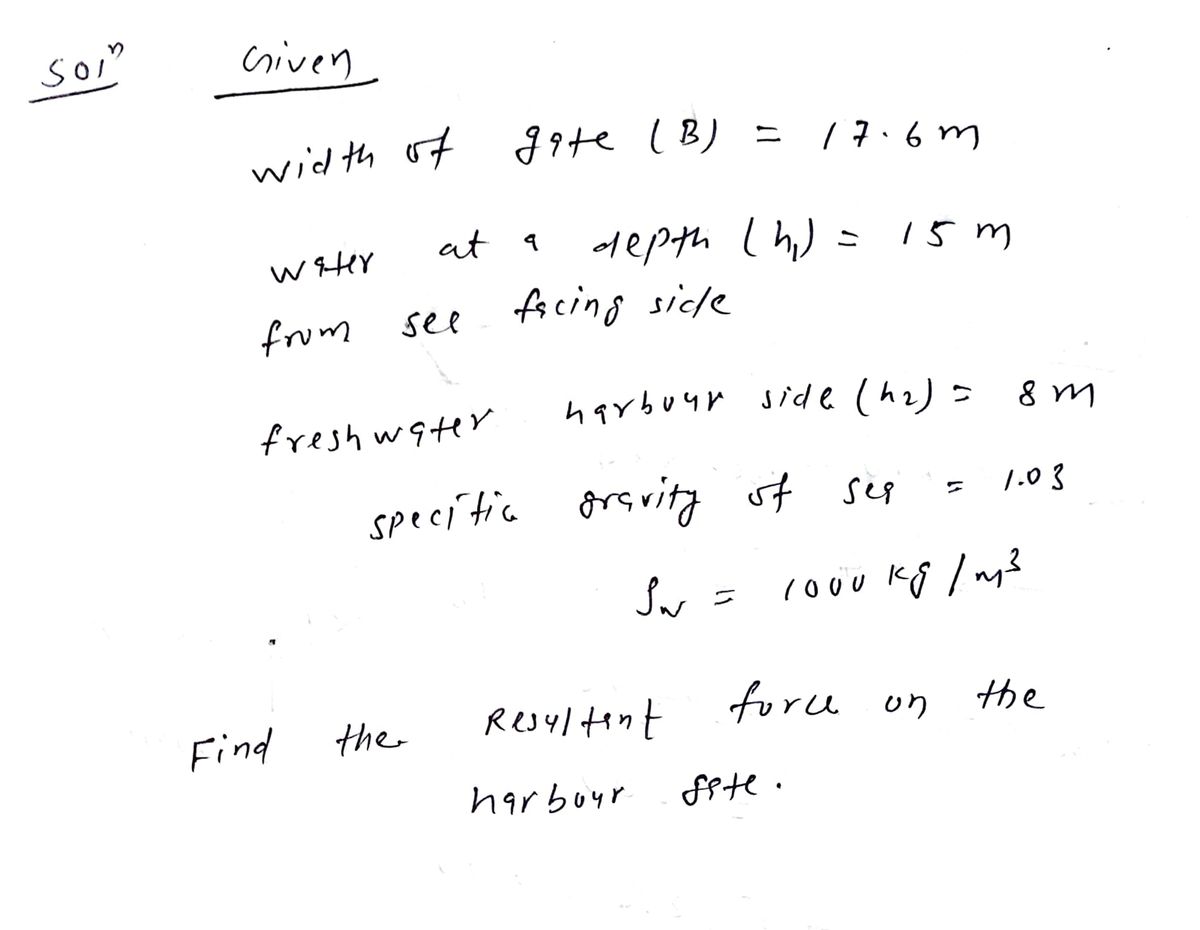 Solⁿ Given
width of gate (B) = 17.6 m
water at a depth (h₁) = 15 m
from see facing side
freshwater harbour side (h2) = 8 m
specific gravity of sea = 1.03
ρw = 1000 kg/m³
Find the Resultant force on the
harbour gate.